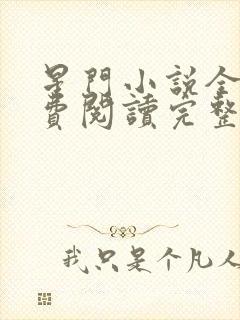 星門小說全
費閱讀完整
我只是个凡人